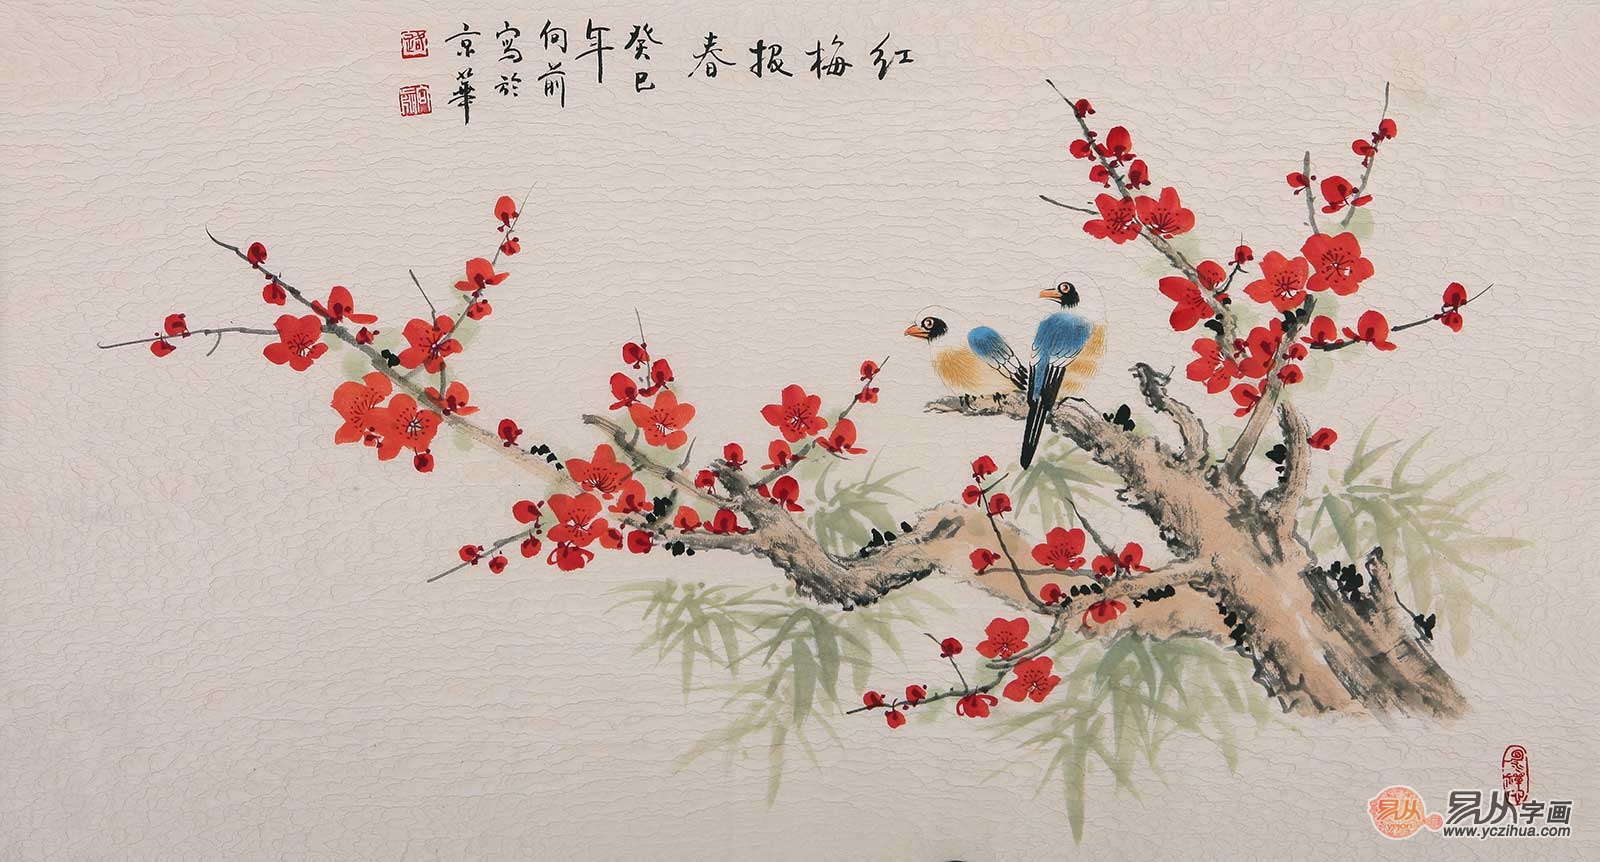 红梅报春
癸巳
年
向前
写於
京華
易从
yicon
易从字画
www.yczihua.com